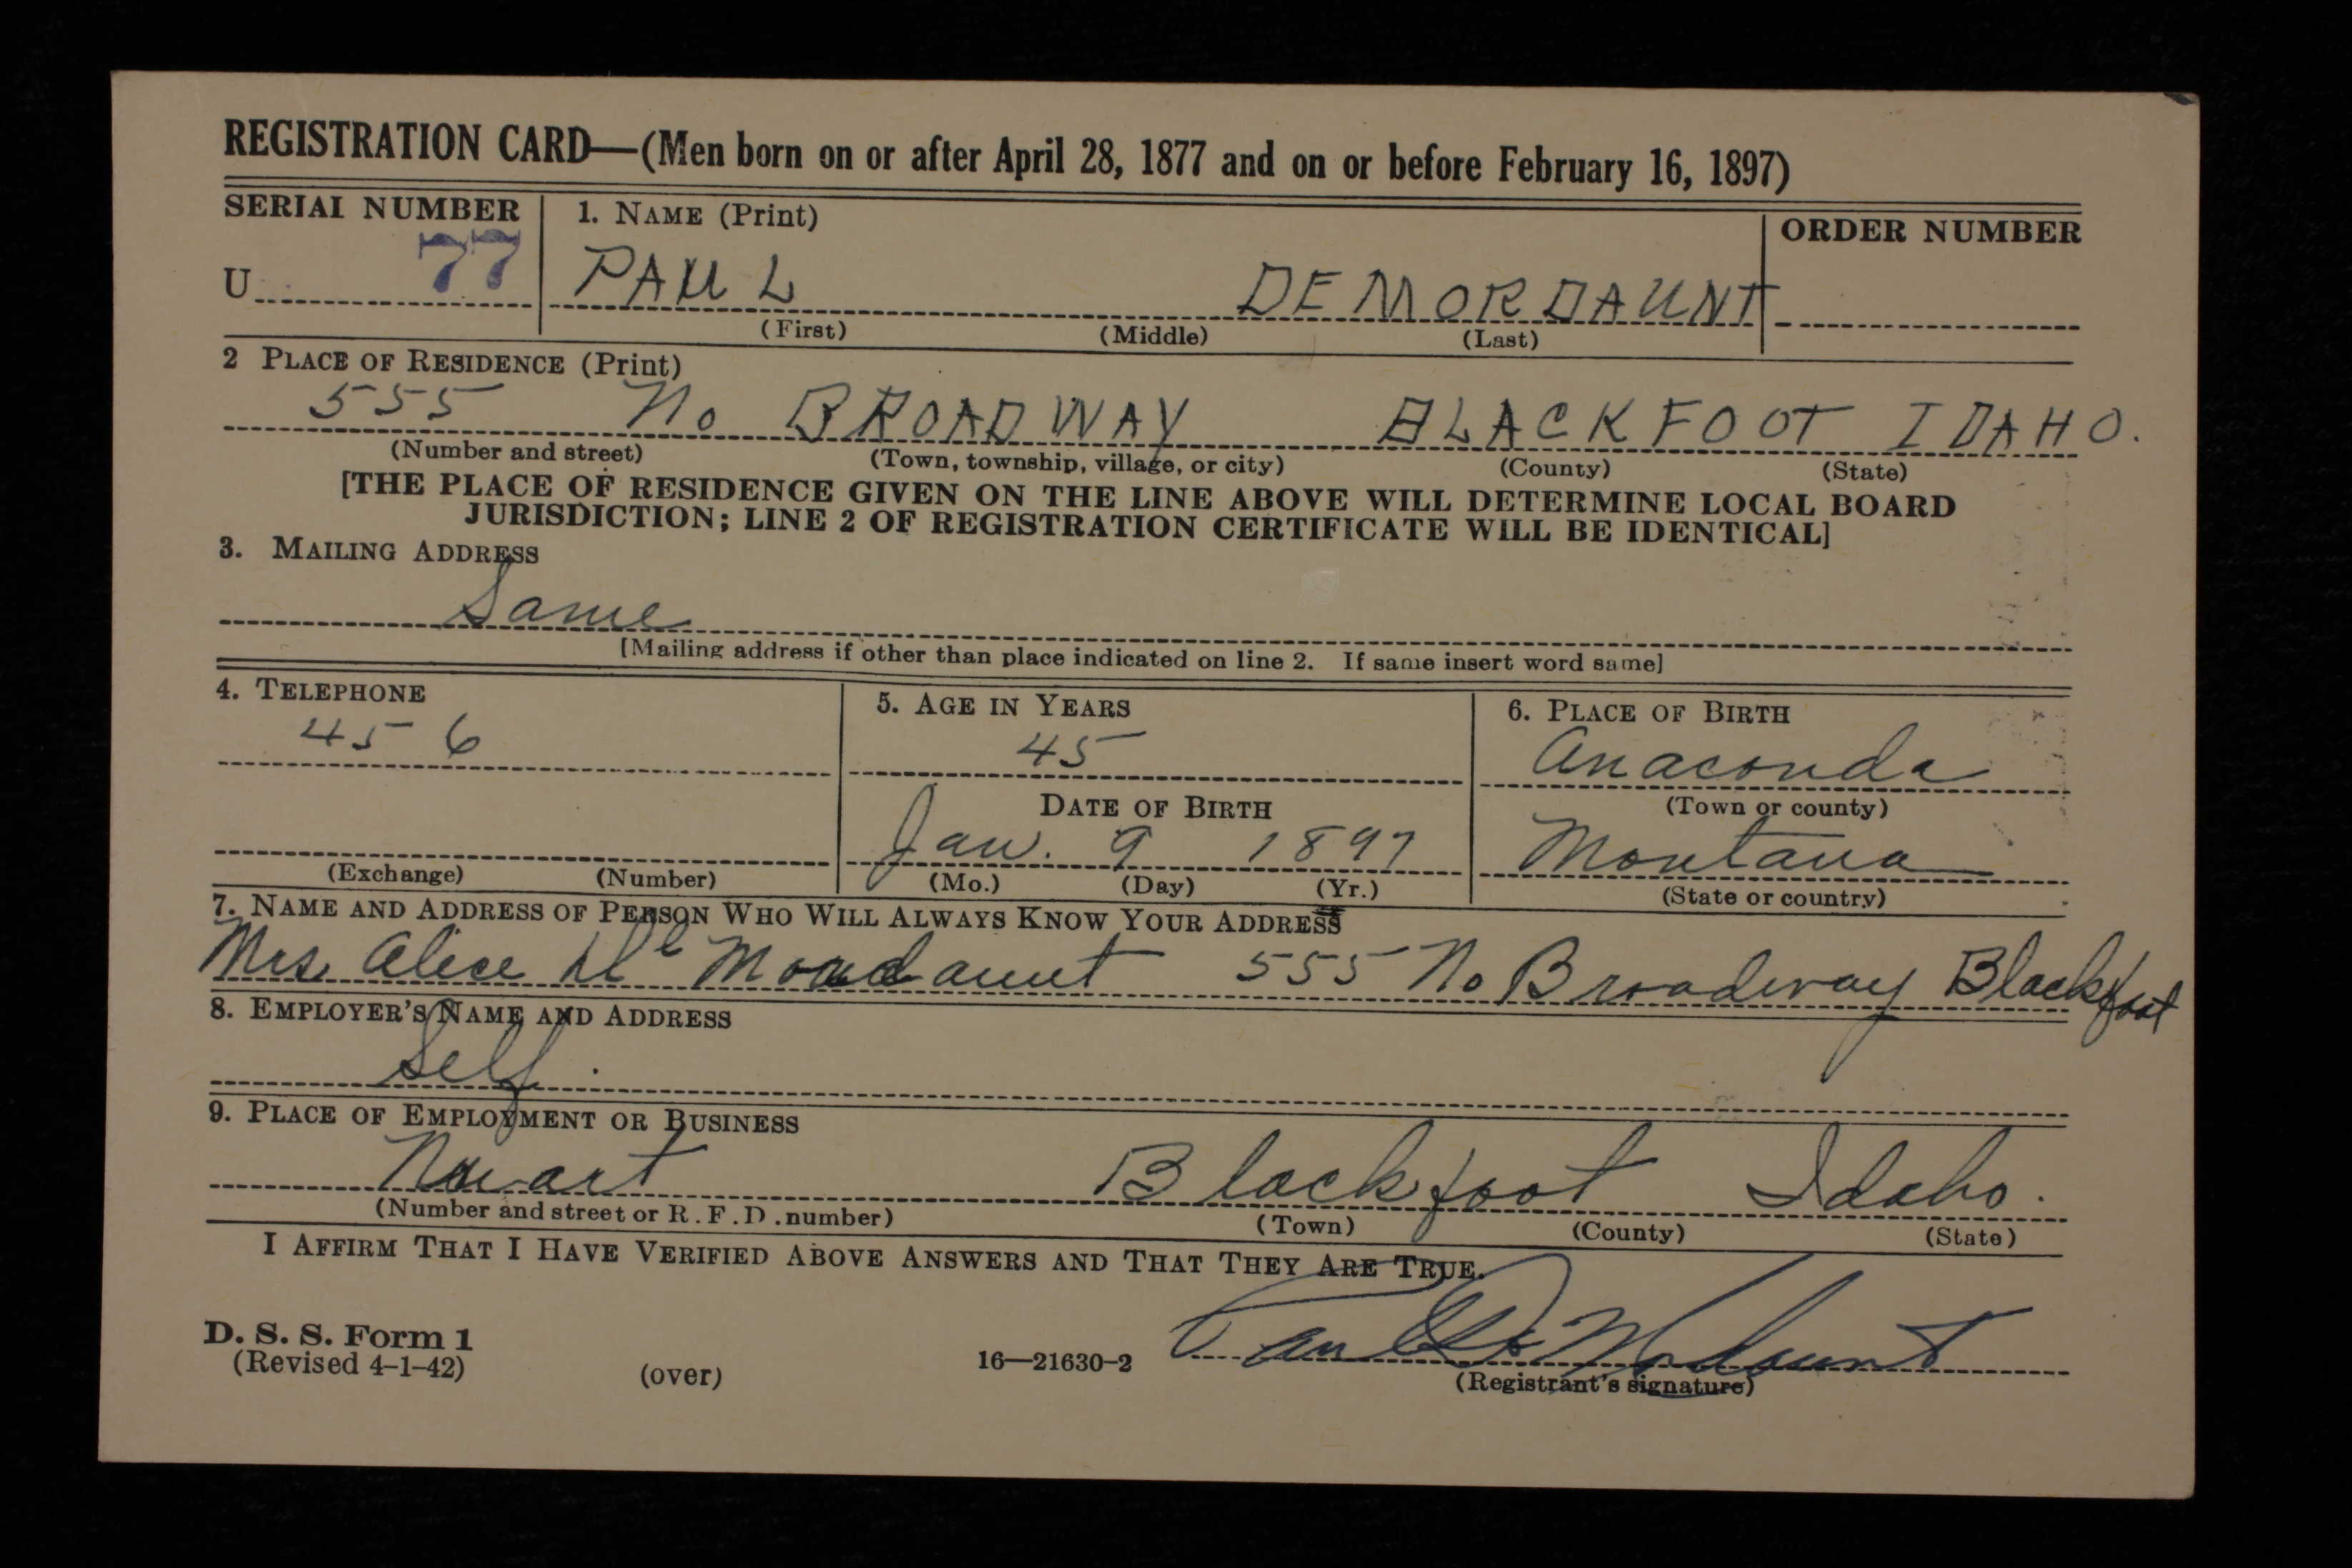 REGISTRATION CARD—(Men born on or after April 28, 1877 and on or before February 16, 1897)
SERIAL NUMBER 1. NAME (Print) ORDER NUMBER
U 77 PAUL DEMORDAUNT
(First) (Middle) (Last)
2 PLACE OF RESIDENCE (Print)
555 No BROADWAY BLACKFOOT IDAHO.
(Number and street) (Town, township, village, or city) (County) (State)
[THE PLACE OF RESIDENCE GIVEN ON THE LINE ABOVE WILL DETERMINE LOCAL BOARD
JURISDICTION; LINE 2 OF REGISTRATION CERTIFICATE WILL BE IDENTICAL]
3. MAILING ADDRESS
Same
[Mailing address if other than place indicated on line 2. If same insert word same]
4. TELEPHONE 5. AGE IN YEARS 6. PLACE OF BIRTH
456 45 Anaconda
DATE OF BIRTH (Town or county)
Jan. 9 1897 Montana
(Exchange) (Number) (Mo.) (Day) (Yr.) (State or country)
7. NAME AND ADDRESS OF PERSON WHO WILL ALWAYS KNOW YOUR ADDRESS
Mrs. Alice De Mordaunt 555 No Broadway Blackfoot
8. EMPLOYER'S NAME AND ADDRESS
Self.
9. PLACE OF EMPLOYMENT OR BUSINESS
Blackfoot Idaho.
(Number and street or R.F.D. number) (Town) (County) (State)
I AFFIRM THAT I HAVE VERIFIED ABOVE ANSWERS AND THAT THEY ARE TRUE.
D. S. S. Form 1
(Revised 4-1-42) (over) 16—21630-2 Paul De Mordaunt
(Registrant's signature)